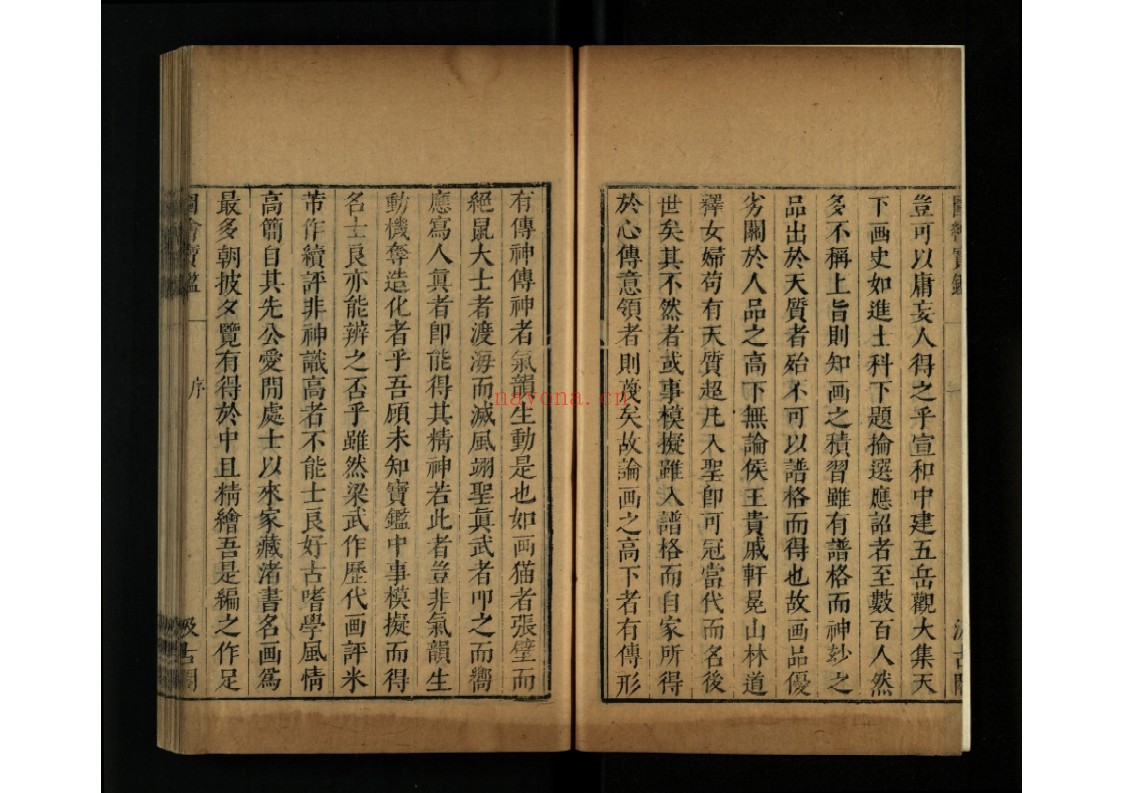 豈可以庸妄人得之乎宣和中建五岳觀大集天
下画史如進士科下題掄選應詔者至數百人然
多不稱上旨則知画之積習雖有譜格而神玅之
品出於天質者殆不可以譜格而得也故画品優
劣關於人品之高下無論侯王貴戚軒冕山林道
釋女婦苟有天質超凡入聖卽可冠當代而名後
世矣其不然者或事模擬雖入譜格而自家所得
於心傳意領者則蔑矣故論画之高下者有傳形
有傳神傳神者氣韻生動是也如画猫者張壁而
絕鼠大士者渡海而滅風翊聖眞武者叩之而嚮
應寫人眞者卽能得其精神若此者豈非氣韻生
動機奪造化者乎吾顧未知寶鑑中事模擬而得
名士良亦能辨之否乎雖然梁武作歷代画評米
芾作續評非神識高者不能士良好古嗜學風情
高簡自其先公愛閒處士以來家藏渚書名画爲
最多朝披夕覽有得於中且精繪吾是編之作足
圖繪寶鑑
序
汲古閣
nayona.cn